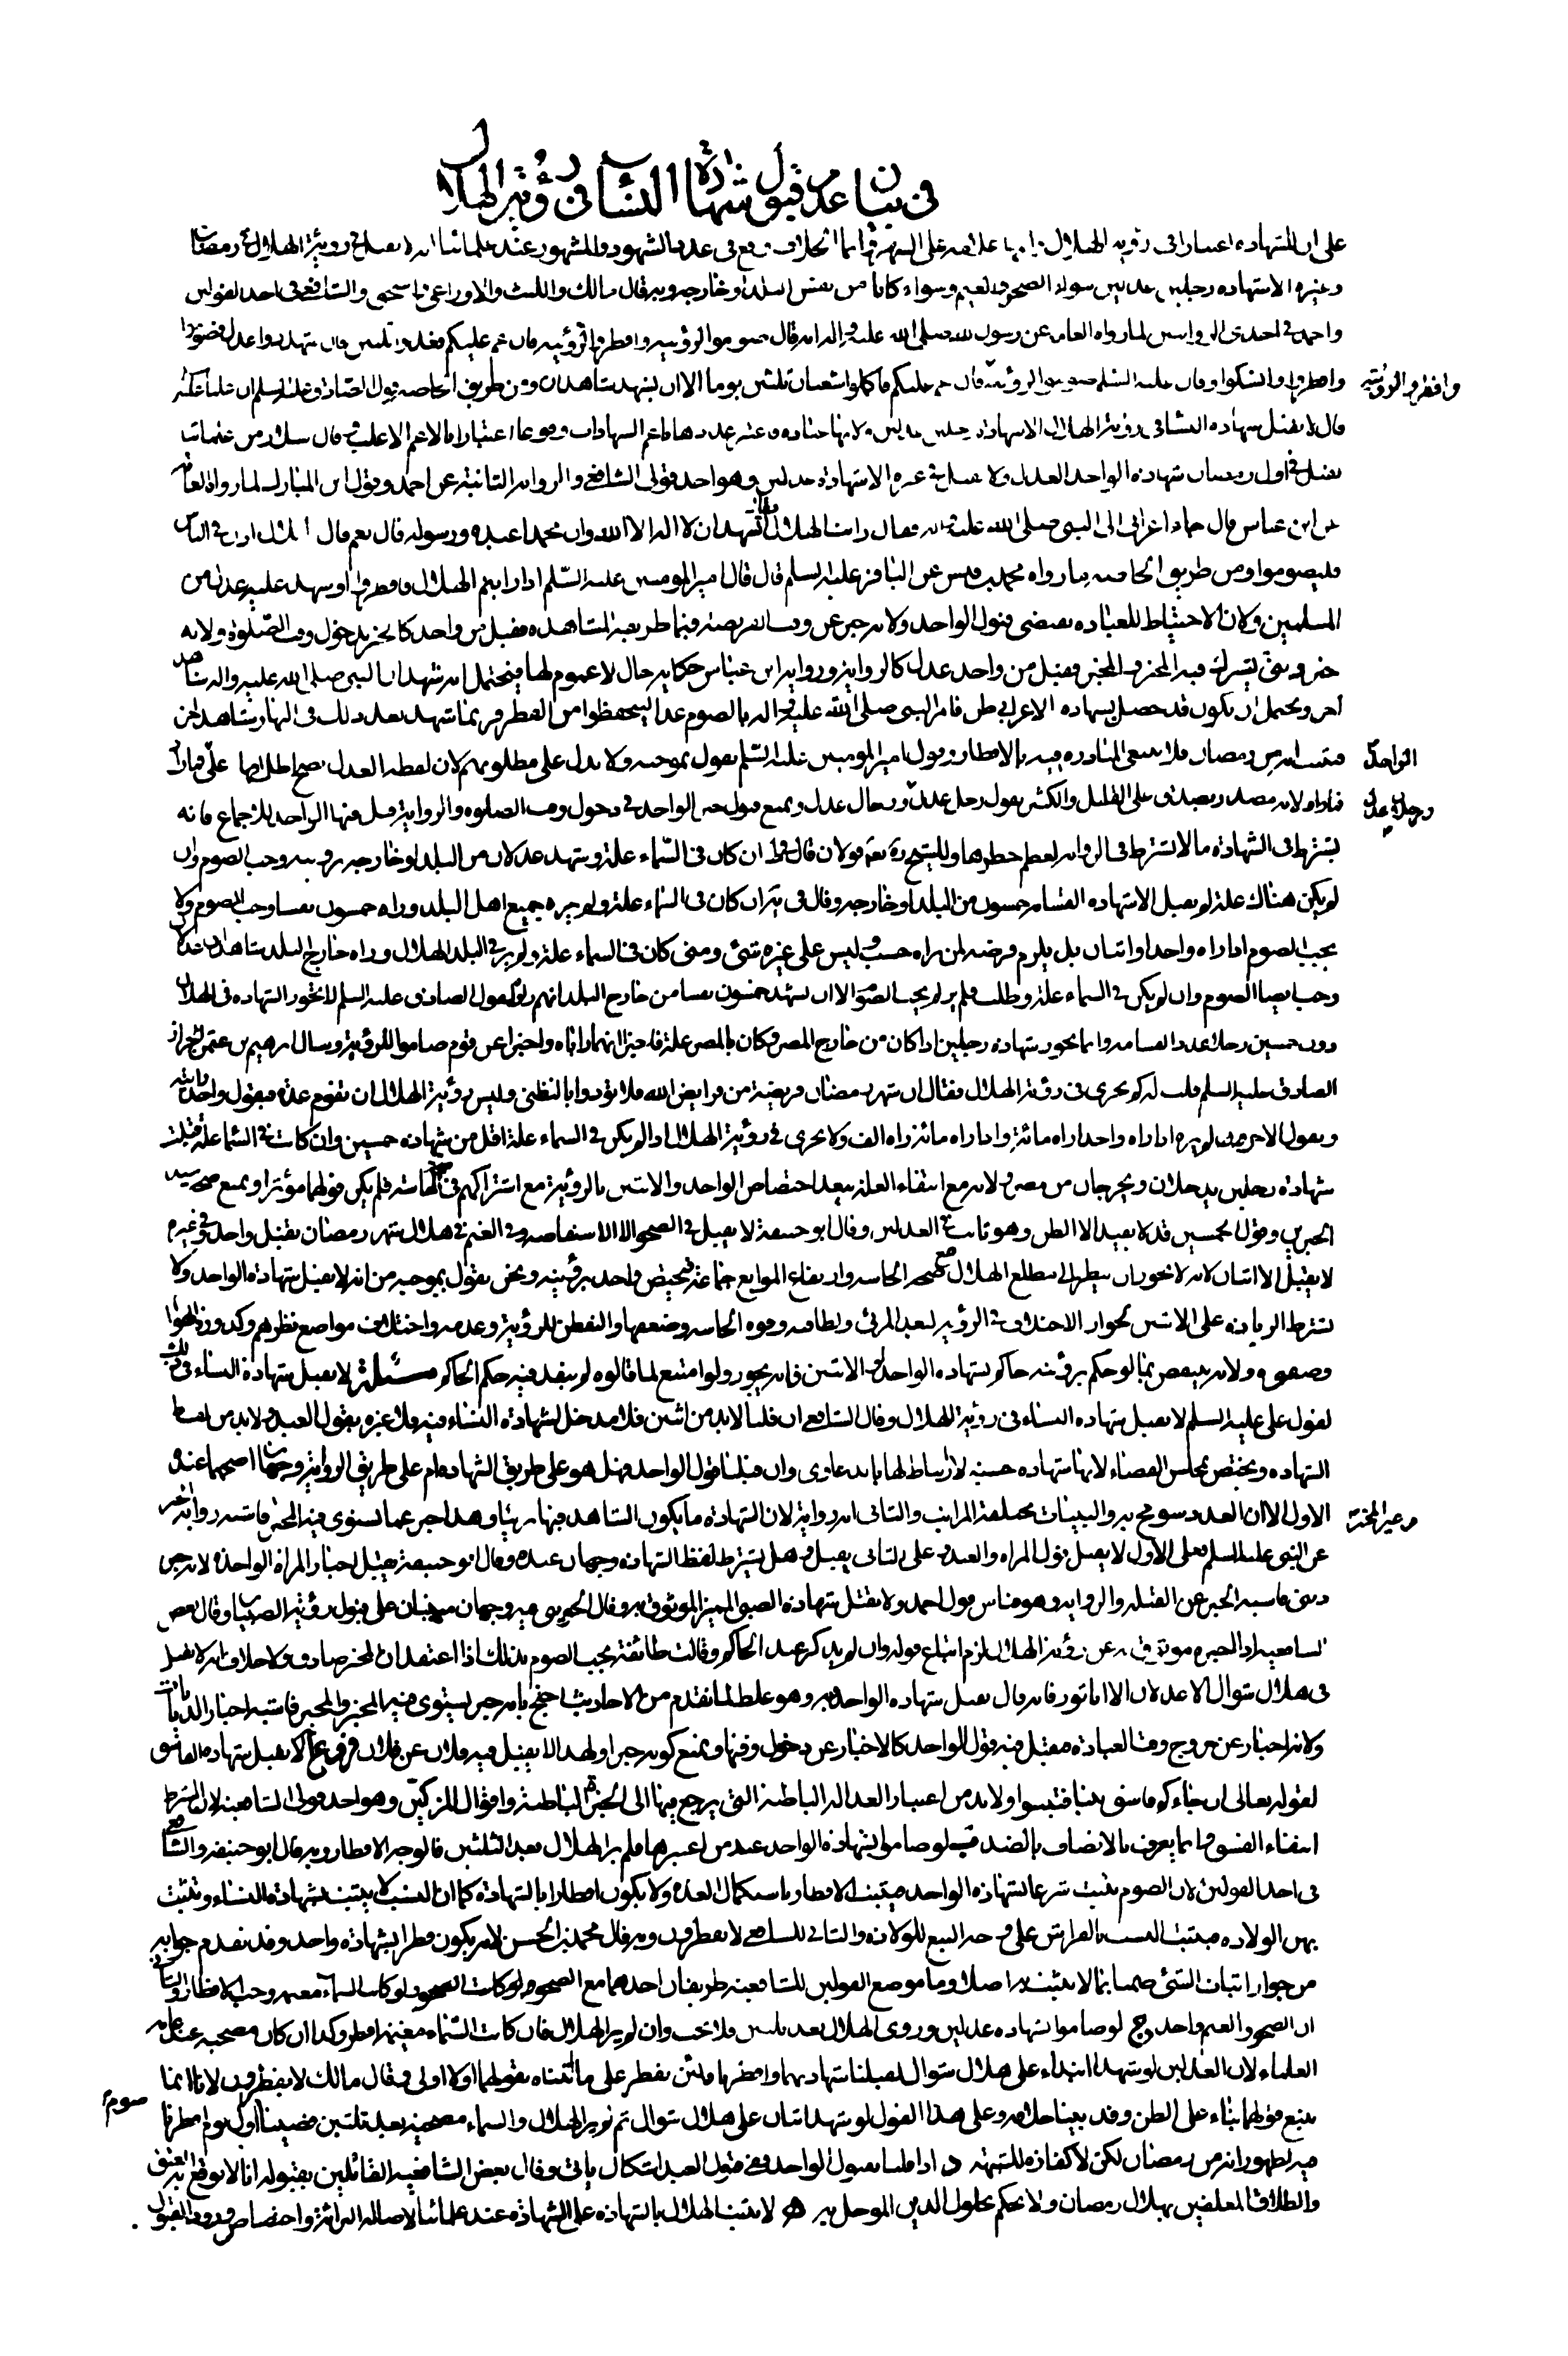 في بيان عدم قبول شهادة النساء في رؤية الهلال
على ان للشهادة اعتبارا في رؤية الهلال وانما الخلاف وقع في عدد الشهود والمشهور عند علمائنا انه لا يقبل في رؤية الهلال في رمضان
وغيره الا شهادة رجلين عدلين سواء الصحو والغيم وسواء كانا من نفس البلد او خارجه وبه قال مالك والليث والاوزاعي واسحق والشافعي في احد القولين
واحمد في احدى الروايتين لما رواه العامة عن رسول الله صلى الله عليه واله انه قال صوموا لرؤيته وافطروا لرؤيته فان غم عليكم فعدوا ثلثين فان شهد ذوا عدل فصوموا
وافطروا وانسكوا وقال عليه السلم صوموا لرؤيته وافطروا لرؤيته فان غم عليكم فاكملوا شعبان ثلثين يوما الا ان يشهد شاهدان ومن طريق الخاصة قول الصادق عليه السلم ان عليا عليه
قال لا تقبل شهادة النساء في رؤية الهلال الا شهادة رجلين عدلين ولانها عبادة فاعتبر عددها باعم الشهادات وقوعا اعتبارا بالاعم الاغلب وقال سلار من علمائنا
يقبل في اول رمضان شهادة الواحد العدل ولا يقبل في غيره الا شهادة عدلين وهو احد قولي الشافعي والرواية الثانية عن احمد وقول ابن المبارك لما رواه العامة
عن ابن عباس قال جاء اعرابي الى النبي صلى الله عليه واله فقال رايت الهلال قال اتشهد ان لا اله الا الله وان محمدا عبده ورسوله قال نعم قال يا بلال اذن في الناس
فليصوموا ومن طريق الخاصة ما رواه محمد بن قيس عن الباقر عليه السلم قال قال امير المومنين عليه السلم اذا رايتم الهلال فافطروا او يشهد عليه عدل من
المسلمين ولان الاحتياط للعبادة يقتضي قبول الواحد ولانه خبر عن وقت الفريضة فيما طريقه المشاهدة فقبل من واحد كالخبر بدخول وقت الصلوة ولانه
خبر ديني يشترك فيه المخبر والمخبر فقبل من واحد عدل كالرواية ورواية ابن عباس حكاية حال لا عموم لها فيحتمل انه شهد ان النبي صلى الله عليه واله شاهد
اخر ويحتمل ان يكون قد حصل بشهادة الاعرابي ظن فامر النبي صلى الله عليه واله بالصوم غدا ليتحفظوا من الفطر فربما شهد بعد ذلك في النهار شاهد اخر
فيثبت انه من رمضان فلا ينبغي المبادرة فيه بالافطار وقول امير المومنين عليه السلم نقول بموجبه ولا يدل على مطلوبهم لان لفظه العدل يصح اطلاقها على الواحد فما زاد
فما زاد لانه مصدر يصدق على القليل والكثير يقول رجل عدل ورجلان عدل ورجال عدل ونمنع قبول خبر الواحد في دخول وقت الصلوة والرواية قبل فيها الواحد للاجماع فانه
يشترط في الشهادة ما لا يشترط في الرواية لعظم خطرها وللشيخ ره قولان قال في ط ان كان في السماء علة وشهد عدلان من البلد او خارجه برؤيته وجب الصوم وان
لم يكن هناك علة لم يقبل الا شهادة القسامة خمسون من البلد او خارجه وقال في يه ان كان في السماء علة ولم يره جميع اهل البلد وراه خمسون نفسا وجب الصوم ولا
يجب الصوم اذا راه واحد او اثنان بل يلزم فرضه لمن راه حسب وليس على غيره شئ ومتى كان في السماء علة ولم ير في البلد الهلال وراه خارج البلد شاهدان عدلان
وجب ايضا الصوم وان لم يكن في السماء علة وطلب فلم ير لم يجب الصوم الا ان يشهد خمسون نفسا من خارج البلد انهم راوه لقول الصادق عليه السلم لا تجوز الشهادة في الهلال
دون خمسين رجلا عدد القسامة وانما تجوز شهادة رجلين اذا كان من خارج المصر وكان بالمصر علة فاخبرا انهما راياه واخبرا عن قوم صاموا للرؤية وسال ابرهيم بن عثمن الخزاز
الصادق عليه السلم قلت له كم يجزي في رؤية الهلال فقال ان شهر رمضان فريضة من فرايض الله فلا تؤدوا بالتظني وليس رؤية الهلال ان تقوم عدة فيقول واحد رايته
ويقول الاخرون لم نره اذا راه واحد راه مائة واذا راه مائة راه الف ولا يجزي في رؤية الهلال اذا لم يكن في السماء علة اقل من شهادة خمسين وان كانت في السماء علة قبلت
شهادة رجلين يدخلان ويخرجان من مصر ولانه مع انتفاء العلة يبعد اختصاص الواحد والاثنين بالرؤية مع اشتراكهم في صحة الحاسة فلم يكن قولهما مؤثرا ونمنع صحة سند
الخبرين وقول الخمسين قد لا يفيد الا الظن وهو ثابت في العدلين وقال ابو حنيفة لا يقبل في الصحو الا الاستفاضة وفي الغيم في هلال شهر رمضان يقبل واحد وفي غيره
لا يقبل الا اثنان لانه لا يجوز ان ينظر الى مطلع الهلال مع صحة الحاسة وارتفاع الموانع جماعة فيختص واحد برؤيته ونحن نقول بموجبه من انه لا يقبل شهادة الواحد ولا
نشترط الزيادة على الاثنين لجواز الاختلاف في الرؤية لبعد المرئي ولطافته وقوة الحاسة وضعفها والتفطن للرؤية وعدمه واختلاف مواضع نظرهم وكدورة الهواء
وصفوه ولانه ينتقض بما لو حكم برؤيته حاكم بشهادة الواحد او الاثنين فانه يجوز ولو امتنع لما قالوه لم ينفذ فيه حكم الحاكم مسئلة لا يقبل شهادة النساء في ذلك
لقول علي عليه السلم لا يقبل شهادة النساء في رؤية الهلال وقال الشافعي ان قلنا لا بد من اثنين فلا مدخل لشهادة النساء فيه ولا عبرة بقول العبد ولا بد من لفظ
الشهادة ويختص بمجلس القضاء لانها شهادة حسبة لا ارتباط لها بالدعاوى وان قبلنا قول الواحد فهل هو على طريق الشهادة ام على طريق الرواية وجهان اصحهما عندهم
الاول الا ان العدد سومح به والبينات مختلفة المراتب والثاني انه رواية لان الشهادة ما يكون الشاهد فيها بريئا وهذا خبر عما يستوي فيه المخبر وغير المخبر فاشبه رواية الخبر
عن النبي عليه السلم فعلى الاول لا يقبل قول المراة والعبد وعلى الثاني يقبل وهل يشترط لفظ الشهادة وجهان عنده وقال ابو حنيفة يقبل اخبار المراة الواحدة لانه خبر
ديني فاشبه الخبر عن القبلة والرواية وهو قياس قول احمد ولا تقبل شهادة الصبي المميز الموثوق به وقال الجويني فيه وجهان مبنيان على قبول رواية الصبيان وقال بعض
الشافعية اذا اخبره موثوق به عن رؤية الهلال لزم اتباع قوله وان لم يذكر عند الحاكم وقالت طائفة يجب الصوم بذلك اذا اعتقد ان المخبر صادق ولا خلاف انه لا يقبل
في هلال شوال الا عدلان الا ابا ثور فانه قال يقبل شهادة الواحد به وهو غلط لما تقدم من الاحاديث احتج بانه خبر يستوي فيه المخبر والمخبر فاشبه اخبار الديانات
ولانه اخبار عن خروج وقت العبادة فيقبل فيه قول الواحد كالاخبار عن دخول وقتها ونمنع كونه خبرا ولهذا لا يقبل فيه فلان عن فلان فروع ا لا يقبل شهادة الفاسق
لقوله تعالى ان جاءكم فاسق بنبأ فتبينوا ولا بد من اعتبار العدالة الباطنة التي يرجع فيها الى الخبرة الباطنة واقوال المزكين وهو احد قولي الشافعية لان الشرط
انتفاء الفسوق وانما يعرف بالاتصاف بالضد ب لو صاموا بشهادة الواحد عند من اعتبرها فلم ير الهلال بعد الثلثين فالوجه الافطار وبه قال ابو حنيفة والشافعي
في احد القولين لان الصوم يثبت شرعا بشهادة الواحد فيثبت الافطار باستكمال العدة ولا يكون افطارا بالشهادة كما ان النسب لا يثبت بشهادة النساء وتثبت
بهن الولادة فيثبت النسب بالفراش على وجه التبع للولادة والثاني للشافعي لا يفطرون وبه قال محمد بن الحسن لانه يكون فطرا بشهادة واحد وقد تقدم جوابه
من جواز اثبات الشئ ضمنا بما لا يثبت به اصلا وما موضع القولين للشافعية طريقان احدهما مع الصحو ولو كانت السماء مغيمة وجب الافطار والثاني
ان الصحو والغيم واحد ج لو صاموا بشهادة عدلين ورؤي الهلال بعد ثلثين فلا بحث وان لم ير الهلال فان كانت السماء مغيمة افطروا وكذا ان كانت مصحية عند عامة
العلماء لان العدلين لو شهدا ابتداء على هلال شوال لقبلنا شهادتهما وافطرنا فلئن نفطر على ما اثبتناه بقولهما اولا اولى وقال مالك لا يفطرون لانا انما
نتبع قولهما بناء على الظن وقد بينا خلافه وعلى هذا القول لو شهد اثنان على هلال شوال ثم لم ير الهلال والسماء مصحية بعد ثلثين قضينا صوم اول يوم افطرنا
فيه لظهور انه من رمضان لكن لا كفارة للشبهة د اذا قلنا بقول الواحد وفي قبول العبد اشكال ياتي وقال بعض الشافعية القائلين بقبوله انا لا نوقع به العتق
والطلاق المعلقين بهلال رمضان ولا نحكم بحلول الدين المؤجل به ه لا يثبت الهلال بالشهادة على الشهادة عند علمائنا لاصالة البرائة واختصاص ورود القبول